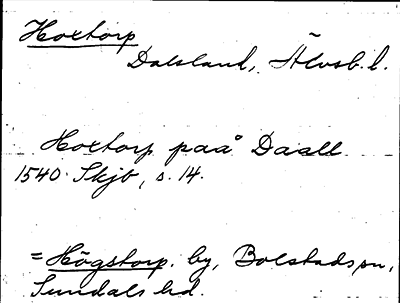 Hoxtorp
Dalsland, Älvsb. l.
Hoxtorp paa Daall
1540. Skjb, s. 14.
= Högstorp. by, Bolstads sn,
Sundals hd.